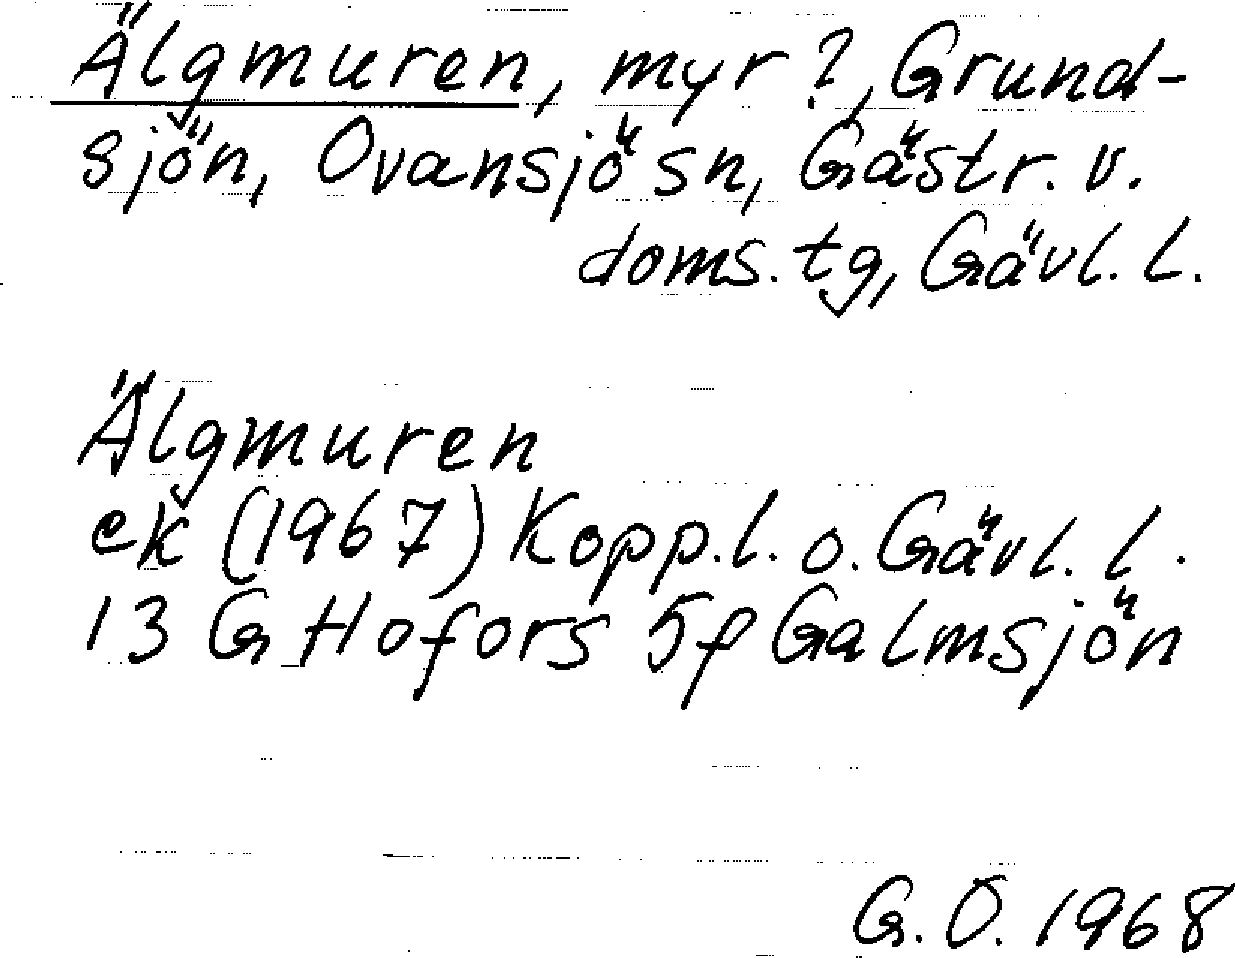 Älgmuren, myr?, Grund-
sjön, Ovansjö sn, Gästr. v.
doms. tg, Gävl. l.
Älgmuren
ek (1967) Kopp. l. o. Gävl. l.
13 G Hofors 5f Galmsjön
G. O. 1968